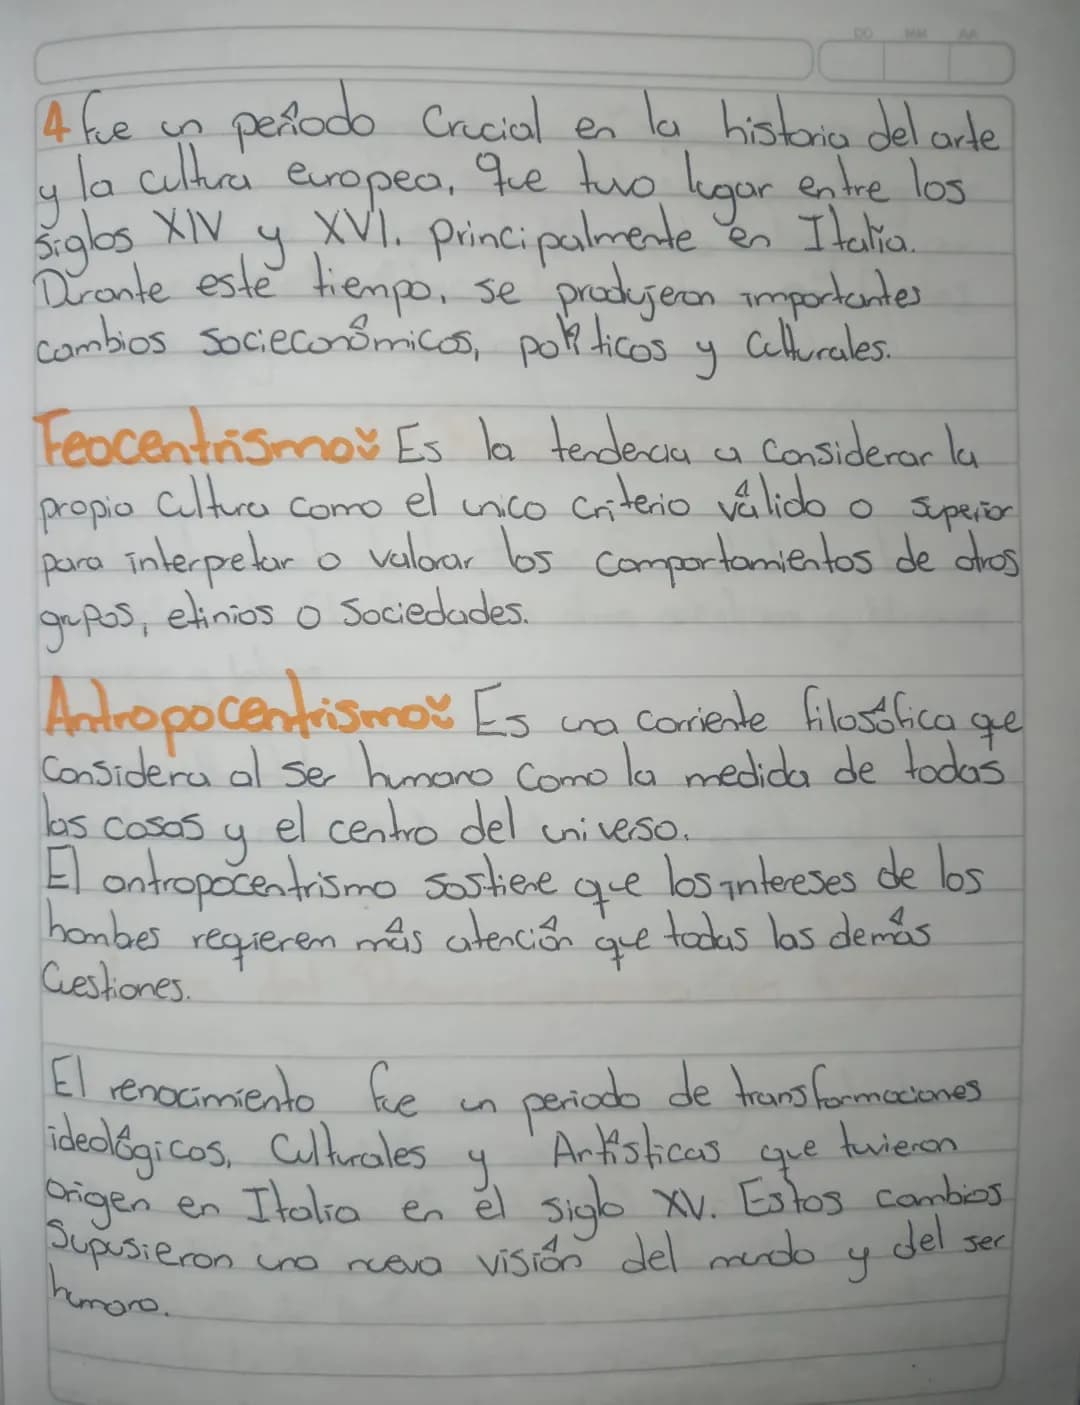 DD MM AA
4 fue un periodo Crucial en la historia del arte
y la cultura europea, que tuvo lugar entre los
siglos XIV y XVI. principalmente en Italia.
Durante este tiempo, se produjeron importantes
cambios socieconómicos, políticos y Culturales.
Teocentrismo: Es la tendencia a Considerar la
propia Cultura como el unico criterio válido o superior
para interpretar o valorar los comportamientos de otros
grupos, etinios o Sociedades.
Antropocentrismo: Es una corriente filosófica que
Considera al ser humano Como la medida de todas
las cosas y el centro del universo.
El antropocentrismo sostiene que los intereses de los
hombes requieren más atención que todas las demás
Cuestiones.
El renacimiento fue un periodo de transformaciones
ideológicos, Culturales y Artísticas que tuvieron
origen en Italia en el siglo XV. Estos cambios
Supusieron una nueva visión del mundo y del ser
humano.